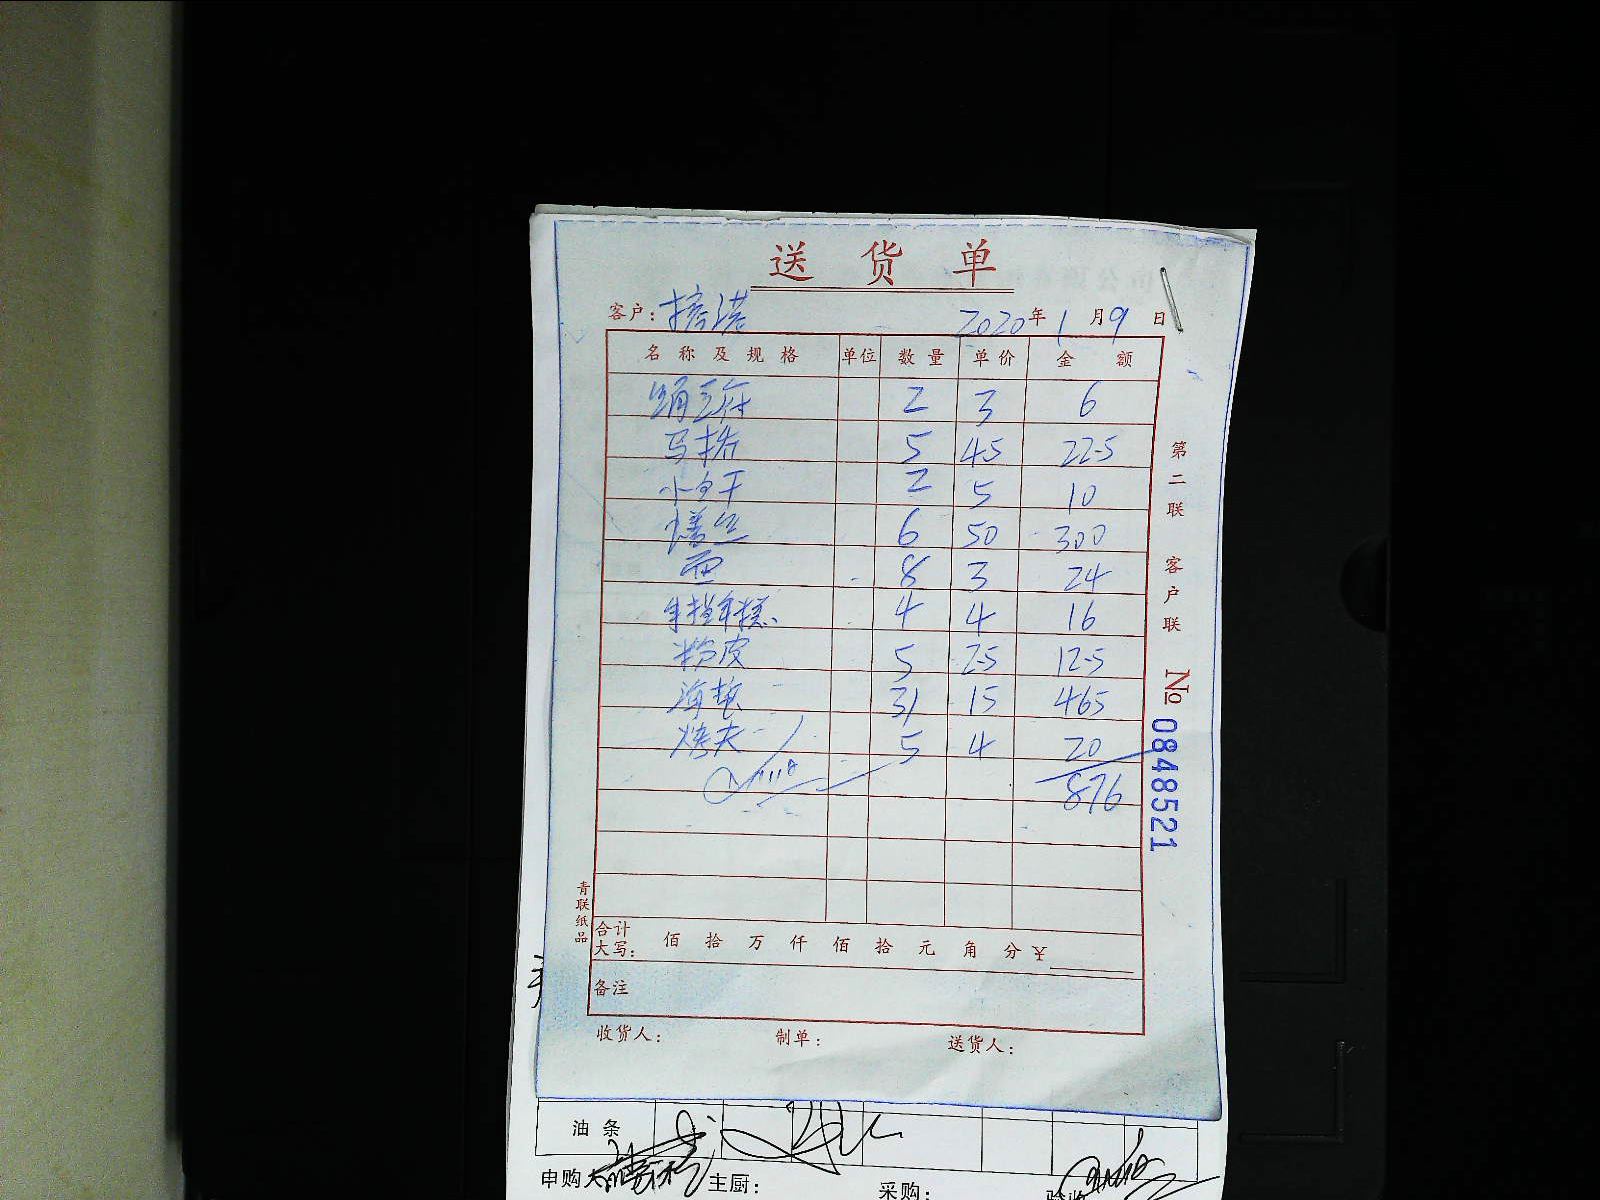 送货单
客户: 2020年1月9日
名称及规格 单位 数量 单价 金额
2 3 6
5 4.5 22.5
小白干 2 5 10
鳝丝 6 50 300
面 8 3 24
年糕 4 4 16
粉皮 5 2.5 12.5
海蜇 31 15 465
烤夫 5 4 20
876
合计大写: 佰 拾 万 仟 佰 拾 元 角 分 ¥
备注
收货人: 制单: 送货人:
第二联 客户联 No 0848521
青联纸品
油条
申购 主厨: 采购: 验收